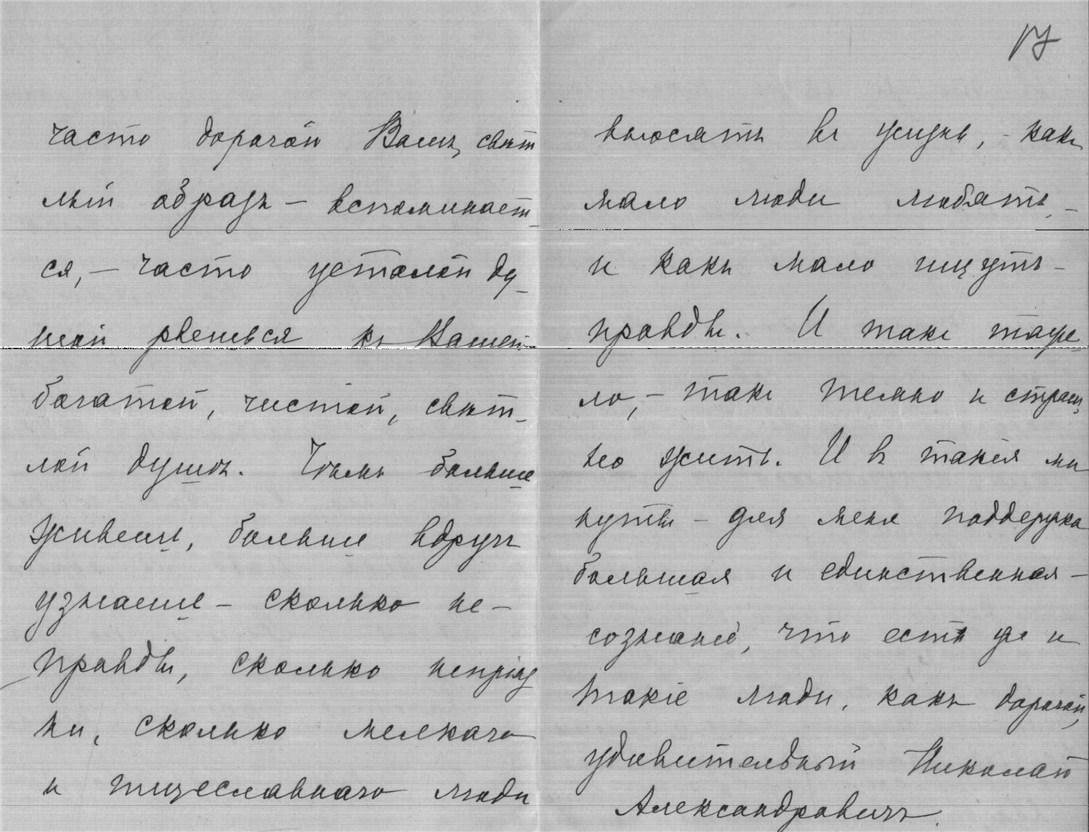 17
часто дорогой Вашъ свѣт
лый образъ – вспоминает
ся, – часто усталой ду
шой рвешься къ Вашей
богатой, чистой, свѣт
лой душѣ. Чѣмъ больше
живешь, больше вдругъ
узнаешь – сколько не-
правды, сколько непрiяз
ни, сколько мелкаго
и тщеславнаго люди
вносятъ въ жизнь, – какъ
мало люди любятъ, –
и какъ мало ищутъ –
правды. И такъ тяже
ло, – такъ темно и страш
но жить. И въ такiя ми
нуты – для меня поддержка
большая и единственная –
сознанiе, что есть же и
такiе люди, какъ дорогой,
удивительный Николай
Александровичъ.